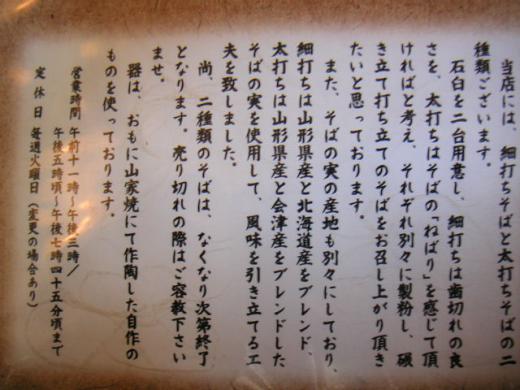 当店には、細打ちそばと太打ちそばの二
種類ございます。
石臼を二台用意し、細打ちは歯切れの良
さを、太打ちはそばの「ねばり」を感じて頂
ければと考え、それぞれ別々に製粉し、碾
き立て打ち立てのそばをお召し上がり頂き
たいと思っております。
また、そばの実の産地も別々にしており、
細打ちは山形県産と北海道産をブレンド、
太打ちは山形県産と会津産をブレンドした
そばの実を使用して、風味を引き立てる工
夫を致しました。
尚、二種類のそばは、なくなり次第終了
となります。売り切れの際はご容赦下さい
ませ。
器は、おもに山家焼にて作陶した自作の
ものを使っております。
営業時間 午前十一時〜午後三時／
午後五時頃〜午後七時四十五分頃まで
定休日 毎週火曜日（変更の場合あり）